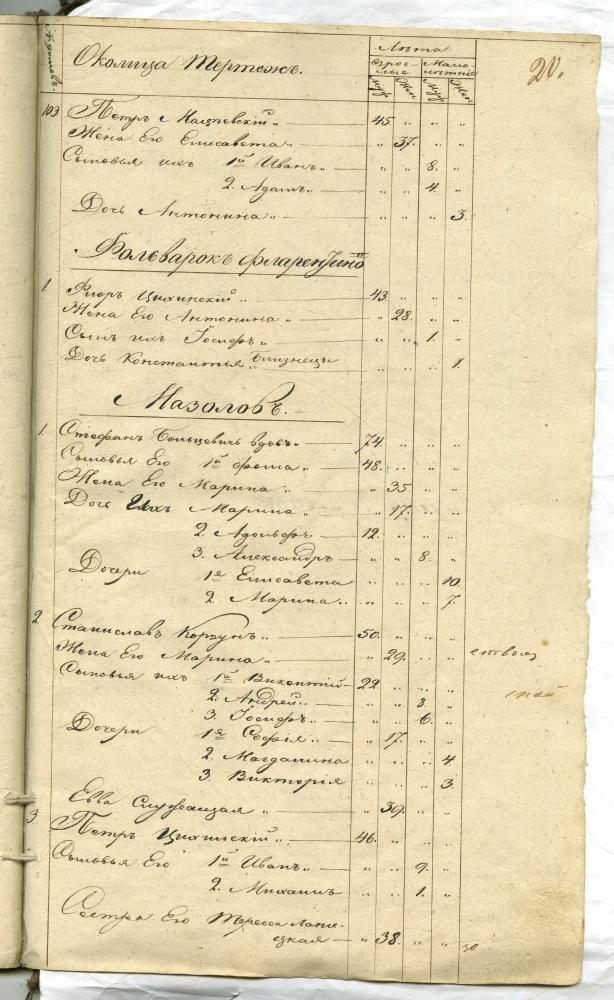 20.
№ домовъ.
Околица Тертежъ.
Лѣта
взрослые. Малолѣтніе
Муж Жен Муж Жен
103 Петръ Жена Его Елисавета „ — „ 37. „ „
45. „ „ „
Сыновья ихъ 1й Иванъ „ — „ „ 8. „
2. Адамъ „ — „ „ 4. „
Дочь Антонина „ — „ „ „ 3.
Фольварокъ Фларенціно
1. Цихинскій „ — 43. „ „ „
Жена Его Антонина „ — „ 28. „ „
Сынъ ихъ Іосифъ „ — „ „ 1. „
Дочь Констанція близнецы „ „ „ 1.
Мазоловъ.
1. Стефанъ Больцевичъ вдовъ „ — 74. „ „ „
Сыновья Его 1й Фома „ — 48. „ „ „
Жена Его Марина „ — „ 35. „ „
Дочь Ихъ Марина „ — „ 17. „ „
2. Адольфъ — 12. „ „ „
3. Александръ — „ „ 8. „
Дочери 1я Елисавета „ „ „ 10.
2. Марина „ „ „ „ 7.
2 Станиславъ Корзунъ „ — 50. „ „ „
Жена Его Марина „ — „ 29. „ „
Сыновья ихъ 1й Викентій — 22. „ „ „
2. Андрей „ — „ „ 8. „
3. Іосифъ „ — „ „ 6. „
Дочери 1я Софія „ — „ 17. „ „
2. Магдалина „ „ „ 4
3. Викторія „ „ „ 3.
Евва Служащая „ — „ 39. „ „
3 Петръ Цихинскій „ — 46. „ „ „
Сыновья Его 1й Иванъ „ — „ „ 9. „
2. Михаилъ — „ „ 1. „
Сестра Его Тересса Лапицкая — „ 38. „ „
30